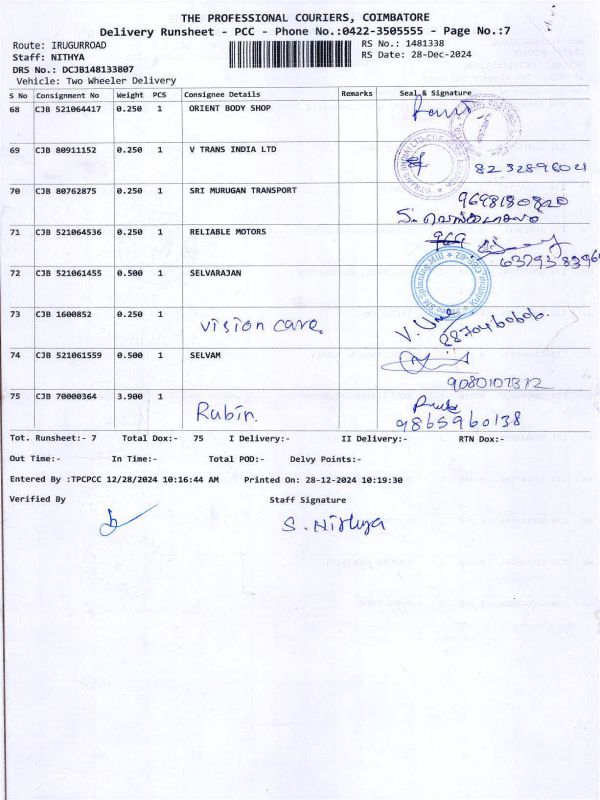 THE PROFESSIONAL COURIERS, COIMBATORE
Delivery Runsheet - PCC - Phone No.:0422-3505555 - Page No.:7
Route: IRUGURROAD
RS No.: 1481338
Staff: NITHYA
RS Date: 28-Dec-2024
DRS No.: DCJB148133807
Vehicle: Two Wheeler Delivery
S No Consignment No Weight PCS Consignee Details Remarks Seal & Signature
68 CJB 521064417 0.250 1 ORIENT BODY SHOP
69 CJB 80911152 0.250 1 V TRANS INDIA LTD
8232896021
70 CJB 80762875 0.250 1 SRI MURUGAN TRANSPORT
9698180820
71 CJB 521064536 0.250 1 RELIABLE MOTORS
72 CJB 521061455 0.500 1 SELVARAJAN
73 CJB 1600852 0.250 1
vision care.
V. Uma
74 CJB 521061559 0.500 1 SELVAM
75 CJB 70000364 3.900 1
Rubin.
9865960138
Tot. Runsheet:- 7 Total Dox:- 75 I Delivery:- II Delivery:- RTN Dox:-
Out Time:- In Time:- Total POD:- Delvy Points:-
Entered By :TPCPCC 12/28/2024 10:16:44 AM Printed On: 28-12-2024 10:19:30
Verified By Staff Signature
S. Nithya